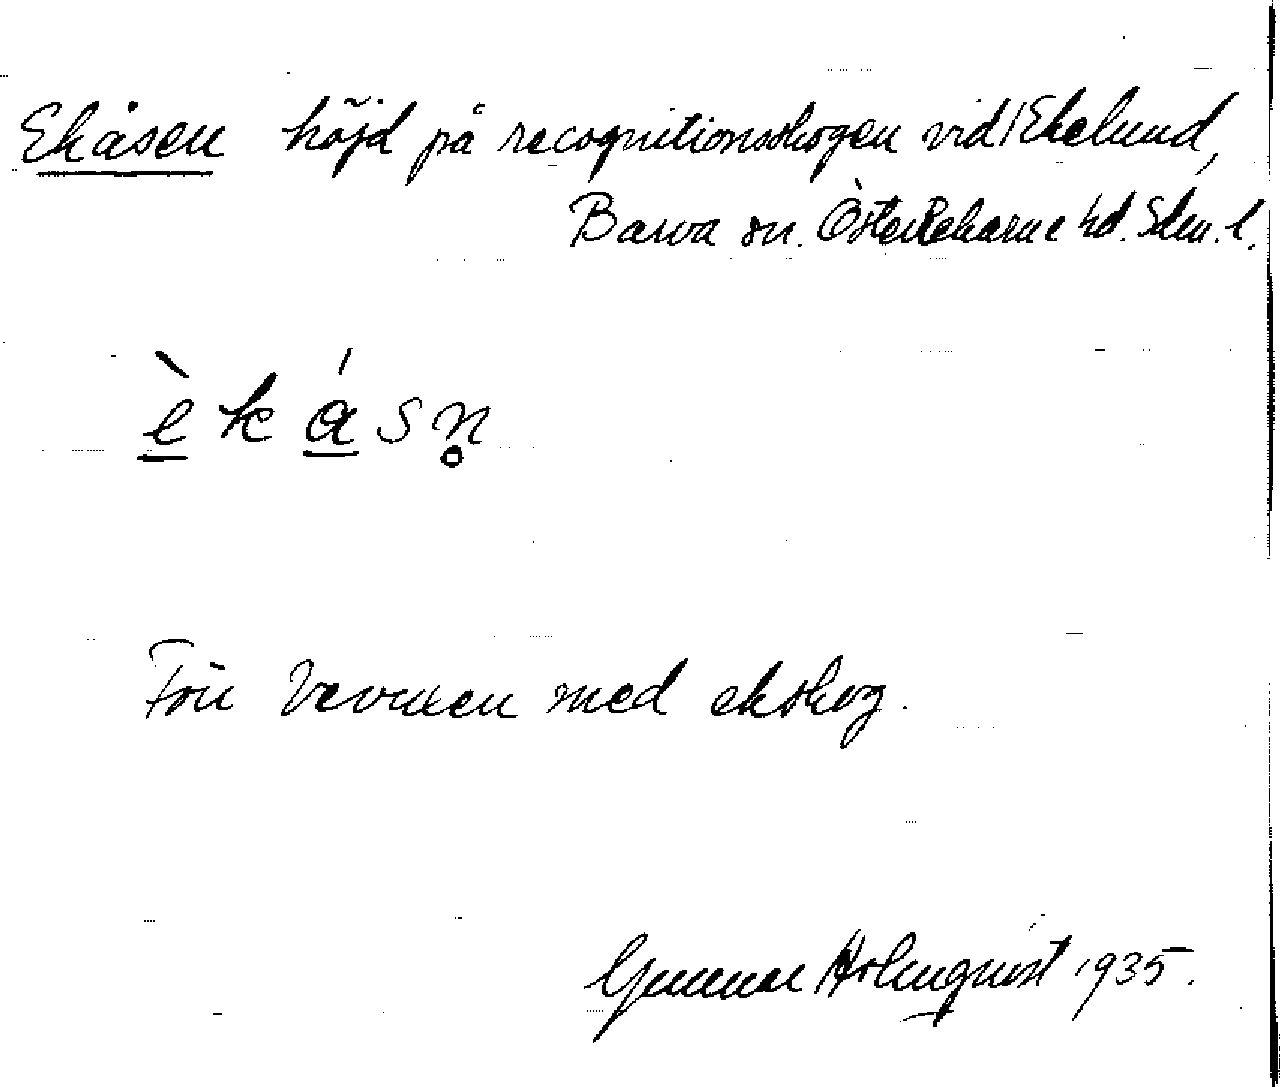 Ekåsen höjd på recognitionsskogen vid Ekelund,
Barva sn. Österrekarne hd. Sdm. l.
è k á s n̥
Förr bevuxen med ekskog.
Gunnar Holmquist 1935.